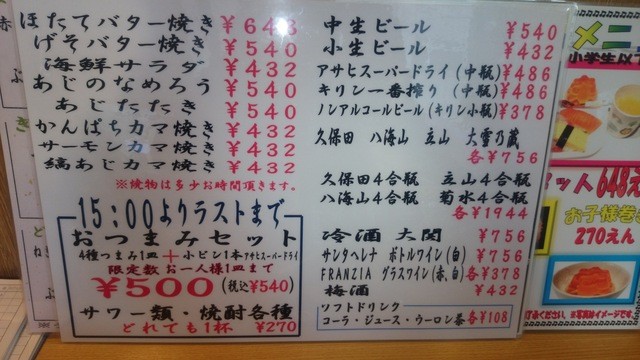 ほたてバター焼き ¥648
げそバター焼き ¥540
海鮮サラダ ¥432
あじのなめろう ¥540
あじたたき ¥540
かんぱちカマ焼き ¥432
サーモンカマ焼き ¥432
縞あじカマ焼き ¥432
※焼物は多少お時間頂きます。
15:00よりラストまで
おつまみセット
4種つまみ1皿+小ビン1本アサヒスーパードライ
限定数 お一人様1皿まで
¥500(税込¥540)
サワー類・焼酎各種
どれでも1杯 ¥270
中生ビール ¥540
小生ビール ¥432
アサヒスーパードライ(中瓶)¥486
キリン一番搾り(中瓶)¥486
ノンアルコールビール(キリン小瓶)¥378
久保田 八海山 立山 大雪乃蔵
各¥756
久保田4合瓶 立山4合瓶
八海山4合瓶 菊水4合瓶
各¥1944
冷酒 大関 ¥756
サンタヘレナ ボトルワイン(白)¥756
FRANZIA グラスワイン(赤、白)各¥378
梅酒 ¥432
ソフトドリンク
コーラ・ジュース・ウーロン茶各¥108
メニ
小学生以下
ット 648え
お子様巻
270えん
ください。※写真はイメージです。